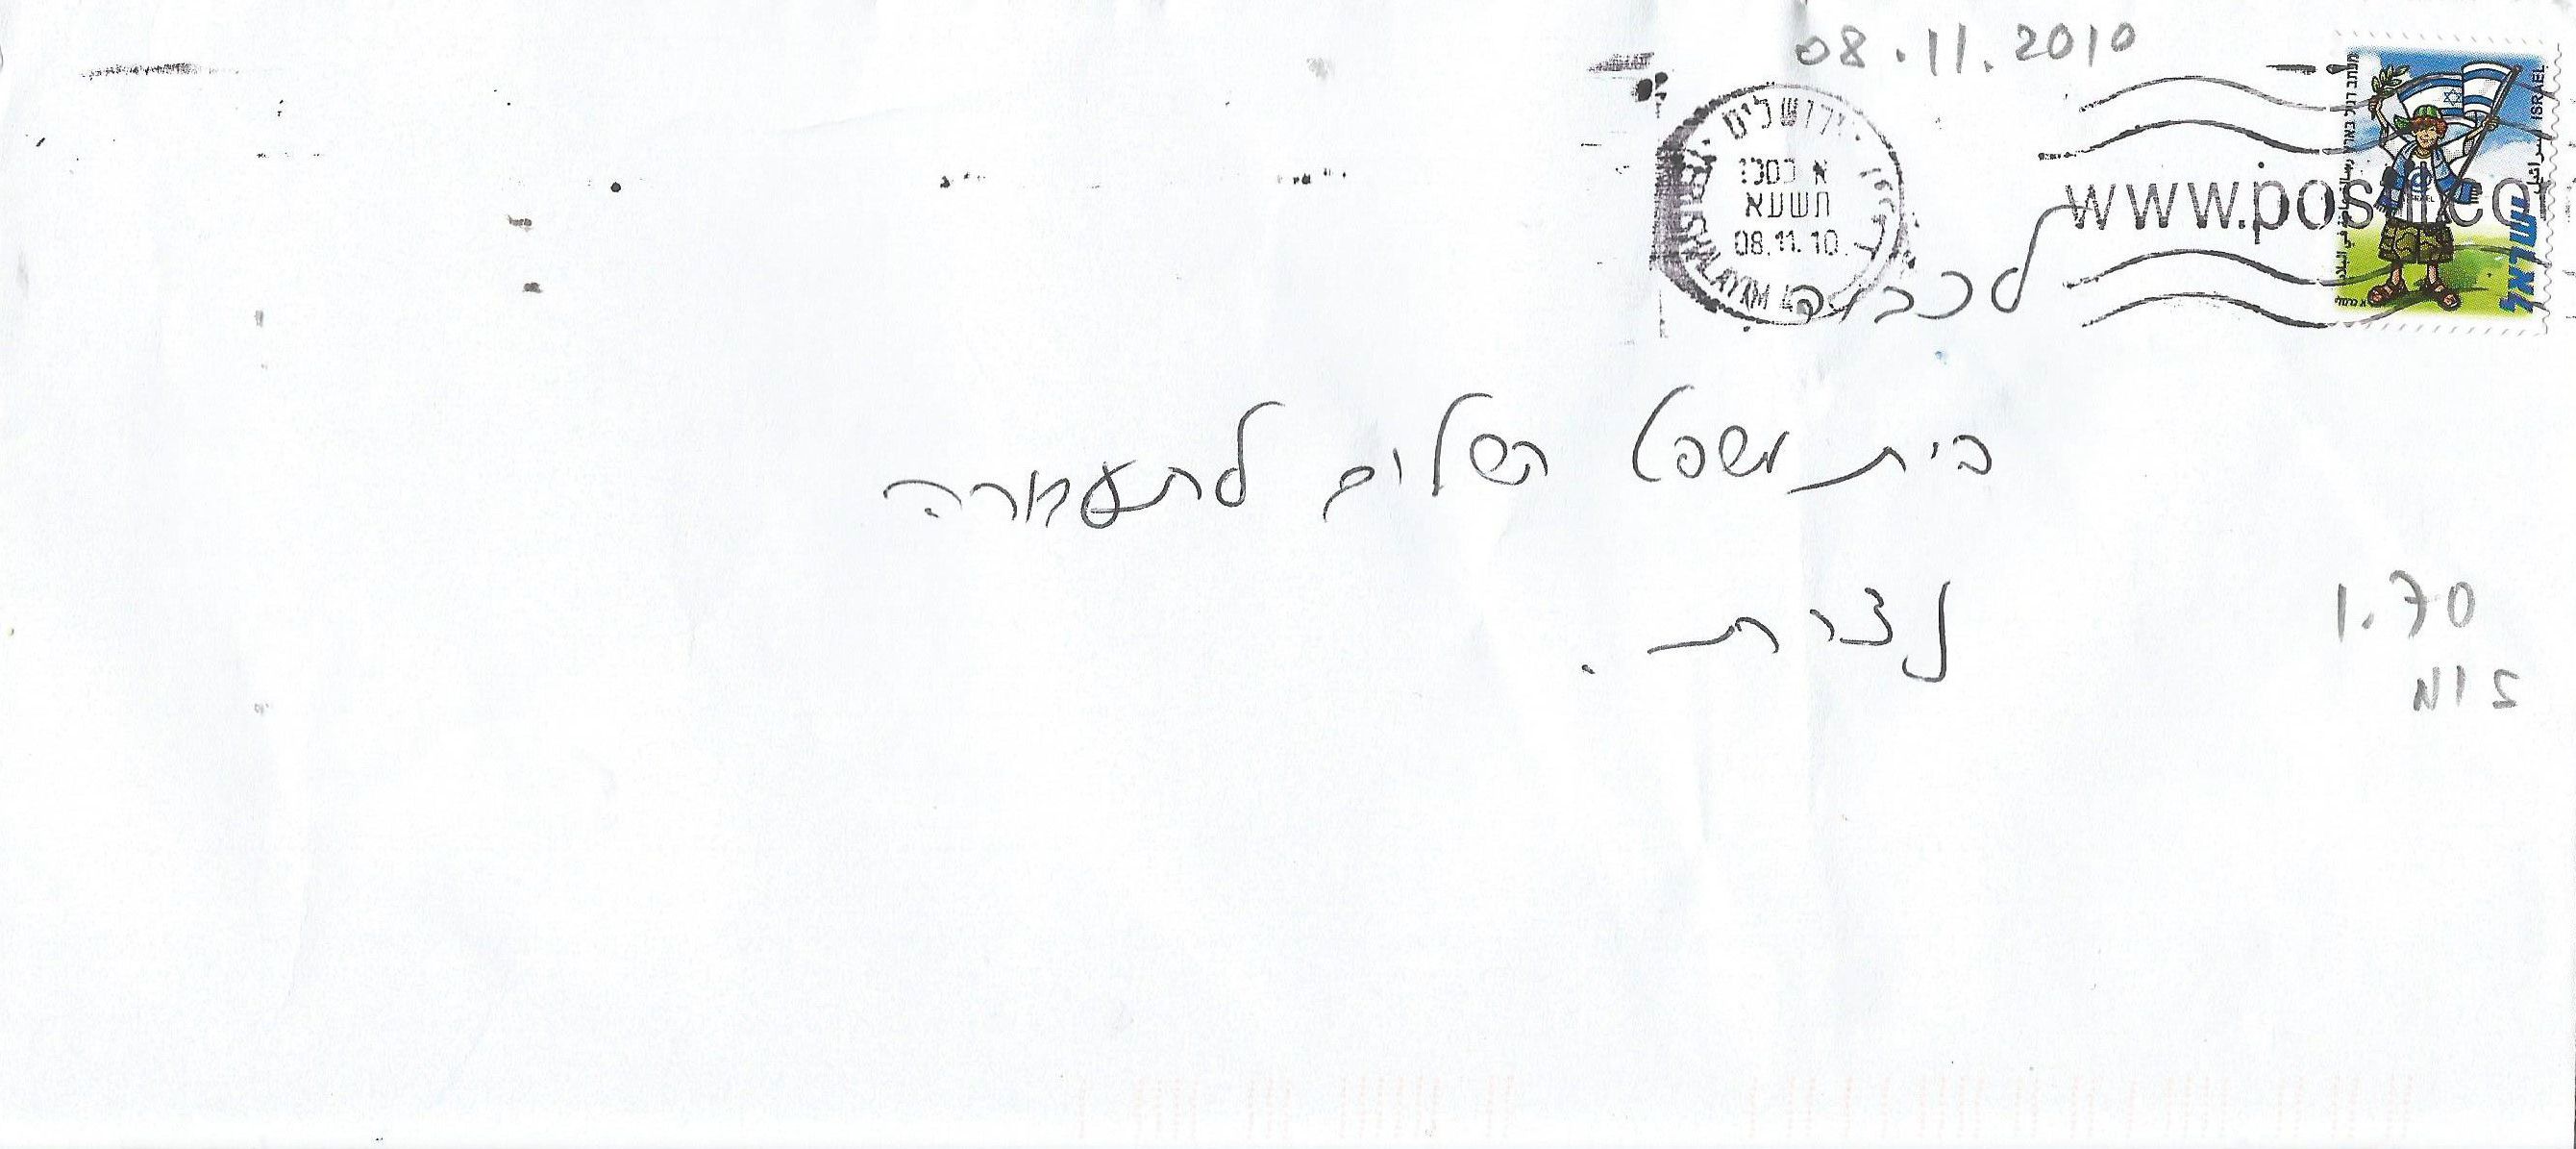 08.11.2010
ירושלים
א כסלו
תשעא
08.11.10
www.posti
ISRAEL
ישראל
לכבוד
בית משפט השלום לתעבורה
נצרת.
1.70